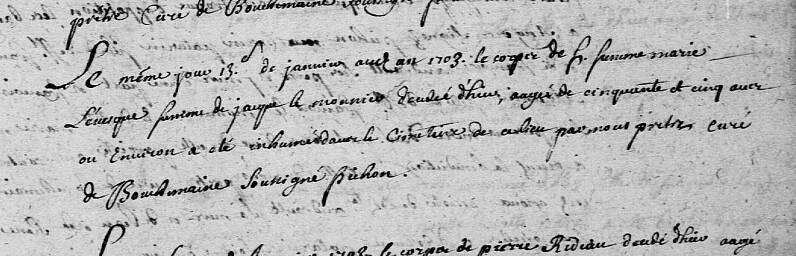 prêtre Curé de Bouchemaine soussigné
Le même jour 13.e de janvier audt an 1703. le corps de h. femme marie
Levesque femme de jacque le mounier decedée d'hier, aagée de cinquante et cinq ans
ou Environ a eté inhumé dans le Cimetiere de ce lieu par nous prêtre curé
de Bouchemaine soussigné
1703 le corps de pierre Rideau decedé d'hier aagé